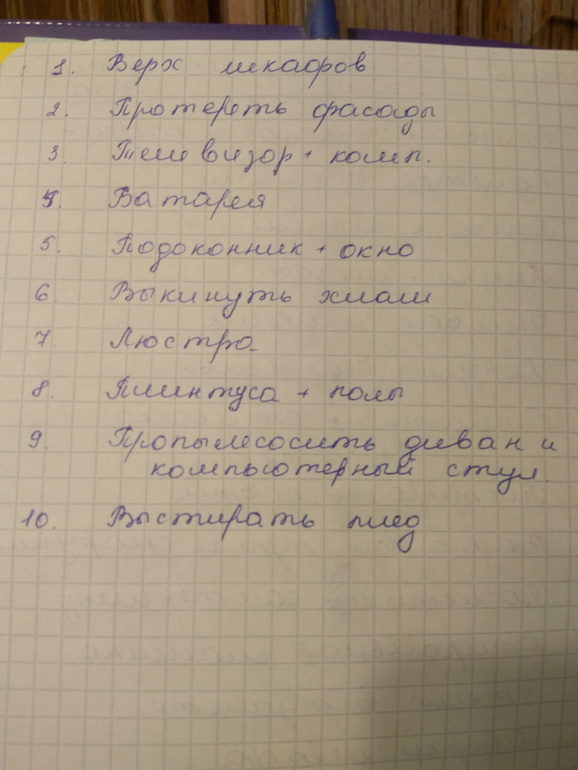 1. Верх шкафов
2. Протереть фасады
3 Телевизор + комп.
4. Батарея
5. Подоконник + окно
6. Выкинуть хлам
7. Люстра
8. Плинтуса + полы
9. Пропылесосить диван и
компьютерный стул.
10. Выстирать плед